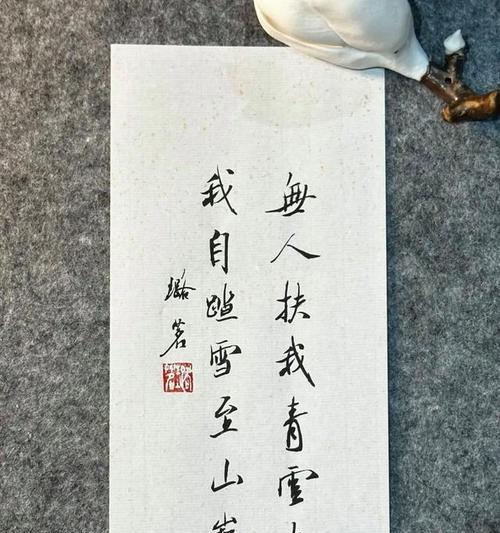 無人扶我青雲
我自踏雪至山
璐茗